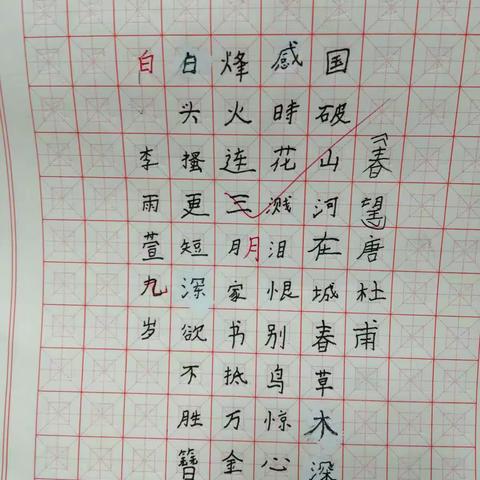 『春望』唐杜甫
国破山河在城春草木深
感時花溅泪恨别鸟惊心
烽火連三月家书抵万金
月
白头搔更短深欲不胜簪
白
李雨萱九岁